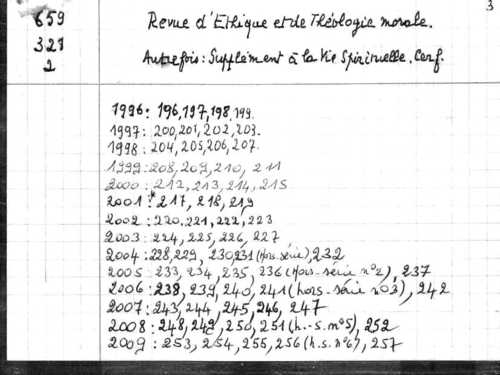 3
659 Revue d'Ethique et de Théologie morale.
321
2 Autrefois: Supplément à la Vie Spirituelle. Cerf.
1996: 196, 197, 198. 199.
1997: 200, 201, 202, 203.
1998: 204, 205, 206, 207.
1999: 208, 209, 210, 211
2000: 212, 213, 214, 215
2001: 217, 218, 219
2002: 220, 221, 222, 223
2003: 224, 225, 226, 227
2004: 228, 229, 230, 231 (Hors-série), 232
2005: 233, 234, 235, 236 (Hors-série n°2), 237
2006: 238, 239, 240, 241 (hors-série n°3), 242
2007: 243, 244, 245, 246, 247
2008: 248, 249, 250, 251 (h.-s. n°5), 252
2009: 253, 254, 255, 256 (h.s. n°6), 257